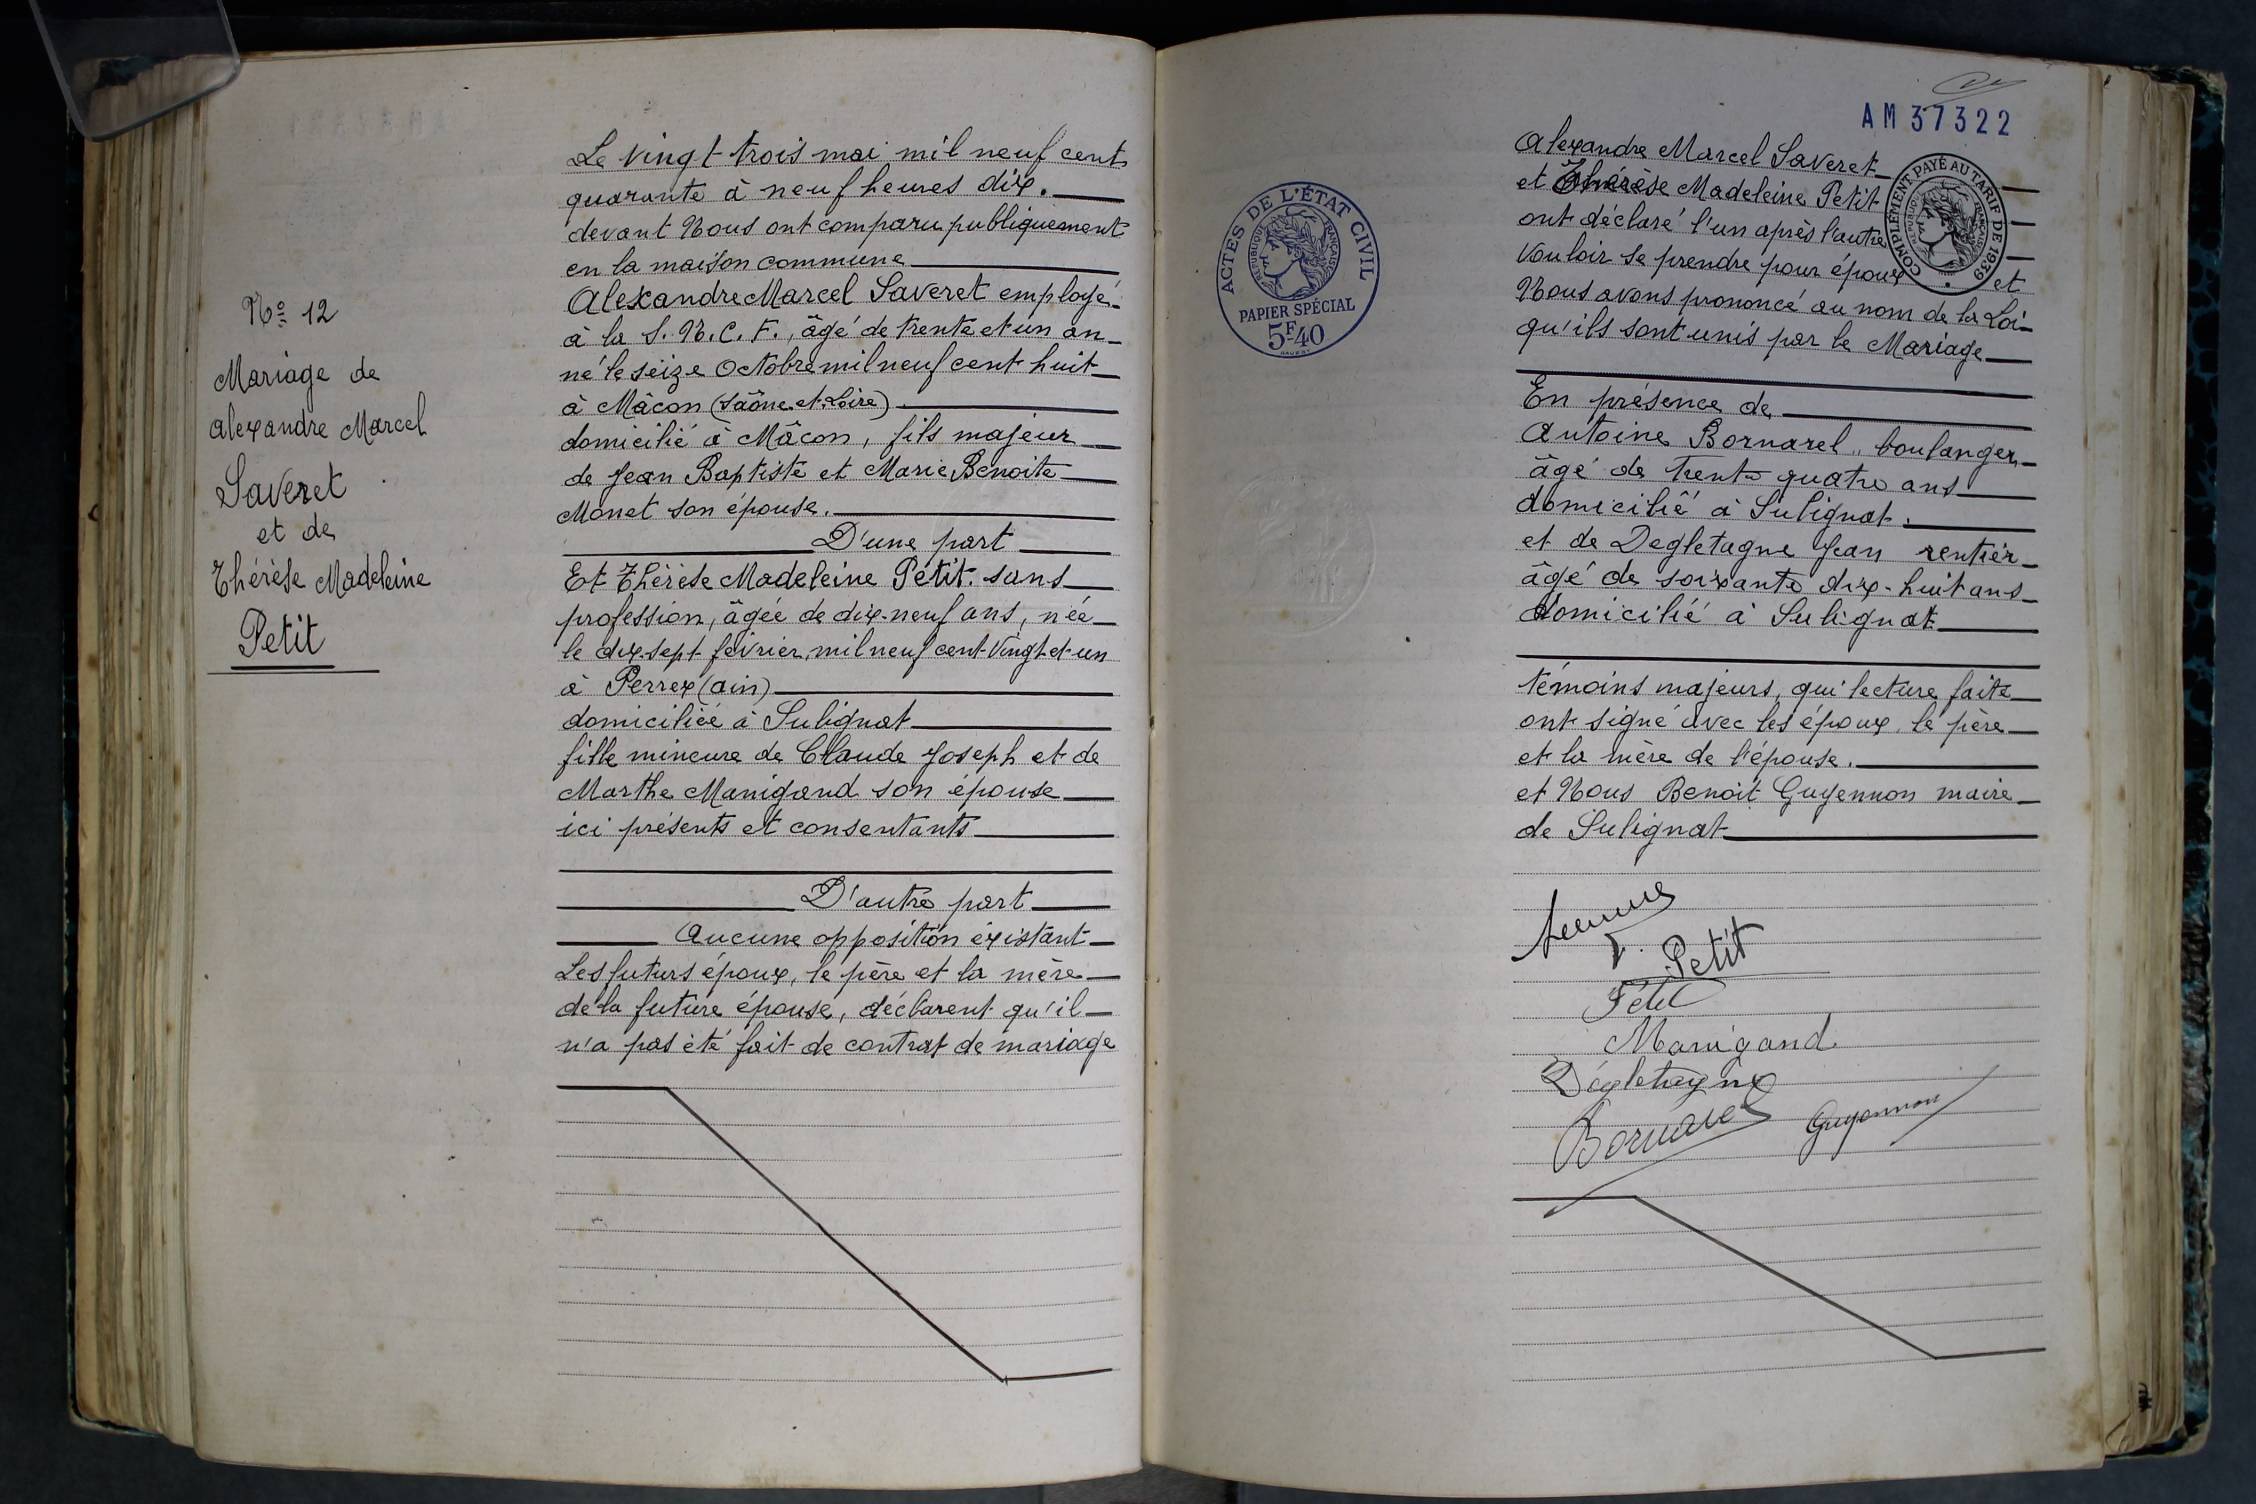 Nº 12
Mariage de
Alexandre Marcel
Saveret
et de
Thérèse Madeleine
Petit
Le vingt trois mai mil neuf cent
quarante à neuf heures dix.
devant Nous ont comparu publiquement
en la maison commune
Alexandre Marcel Saveret employé
à la S.N.C.F., âgé de trente et un an
né le seize Octobre mil neuf cent huit
à Mâcon (Saône et Loire)
domicilié à Mâcon, fils majeur
de Jean Baptiste et Marie Benoite
Monet son épouse.
D'une part
Et Thérèse Madeleine Petit. sans
profession, âgée de dix-neuf ans, née
le dix-sept février, mil neuf cent vingt et un
à Perrex (ain)
domiciliée à Sulignat
fille mineure de Claude Joseph et de
Marthe Manigand son épouse
ici présents et consentants
D'autre part
Aucune opposition existant
Les futurs époux, le père et la mère
de la future épouse, déclarent qu'il
n'a pas été fait de contrat de mariage
AM 37322
ACTES DE L'ÉTAT CIVIL
RÉPUBLIQUE FRANÇAISE
PAPIER SPÉCIAL
5F40
COMPLÉMENT PAYÉ AU TARIF DE 1939
RÉPUBLIQUE FRANÇAISE
Alexandre Marcel Saveret
et Thérèse Madeleine Petit
ont déclaré l'un après l'autre
vouloir se prendre pour époux et
Nous avons prononcé au nom de la Loi
qu'ils sont unis par le Mariage
En présence de
Antoine Bornarel, boulanger,
âgé de trente quatre ans
domicilié à Sulignat.
et de Degletagne Jean rentier
âgé de soixante dix-huit ans
domicilié à Sulignat
témoins majeurs, qui lecture faite
ont signé avec les époux, le père
et la mère de l'épouse.
et Nous Benoit Guyennon maire
de Sulignat
T. Petit
Petit
Manigand
Dégletagne
Bornarel
Guyennon